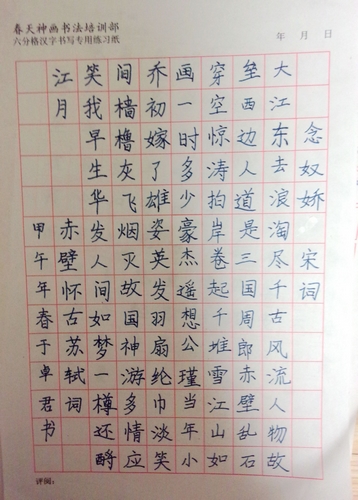 春天神画书法培训部
六分格汉字书写专用练习纸
年 月 日
念奴娇 宋词
大江东去浪淘尽千古风流人物故
垒西边人道是三国周郎赤壁乱石
穿空惊涛拍岸卷起千堆雪江山如
画一时多少豪杰遥想公瑾当年小
乔初嫁了雄姿英发羽扇纶巾淡笑
间樯橹灰飞烟灭故国神游多情应
笑我早生华发人间如梦一樽还酹
江月 赤壁怀古苏轼词
甲午年春于卓君书
评阅：